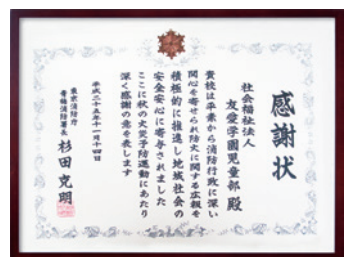 感謝状
社会福祉法人
友愛学園児童部 殿
貴校は平素から消防行政に深い
関心を寄せられ防火に関する広報を
積極的に推進し地域社会の
安全安心に寄与されました
ここに秋の火災予防運動にあたり
深く感謝の意を表します
平成二十五年十一月十四日
東京消防庁
青梅消防署長 杉田克明